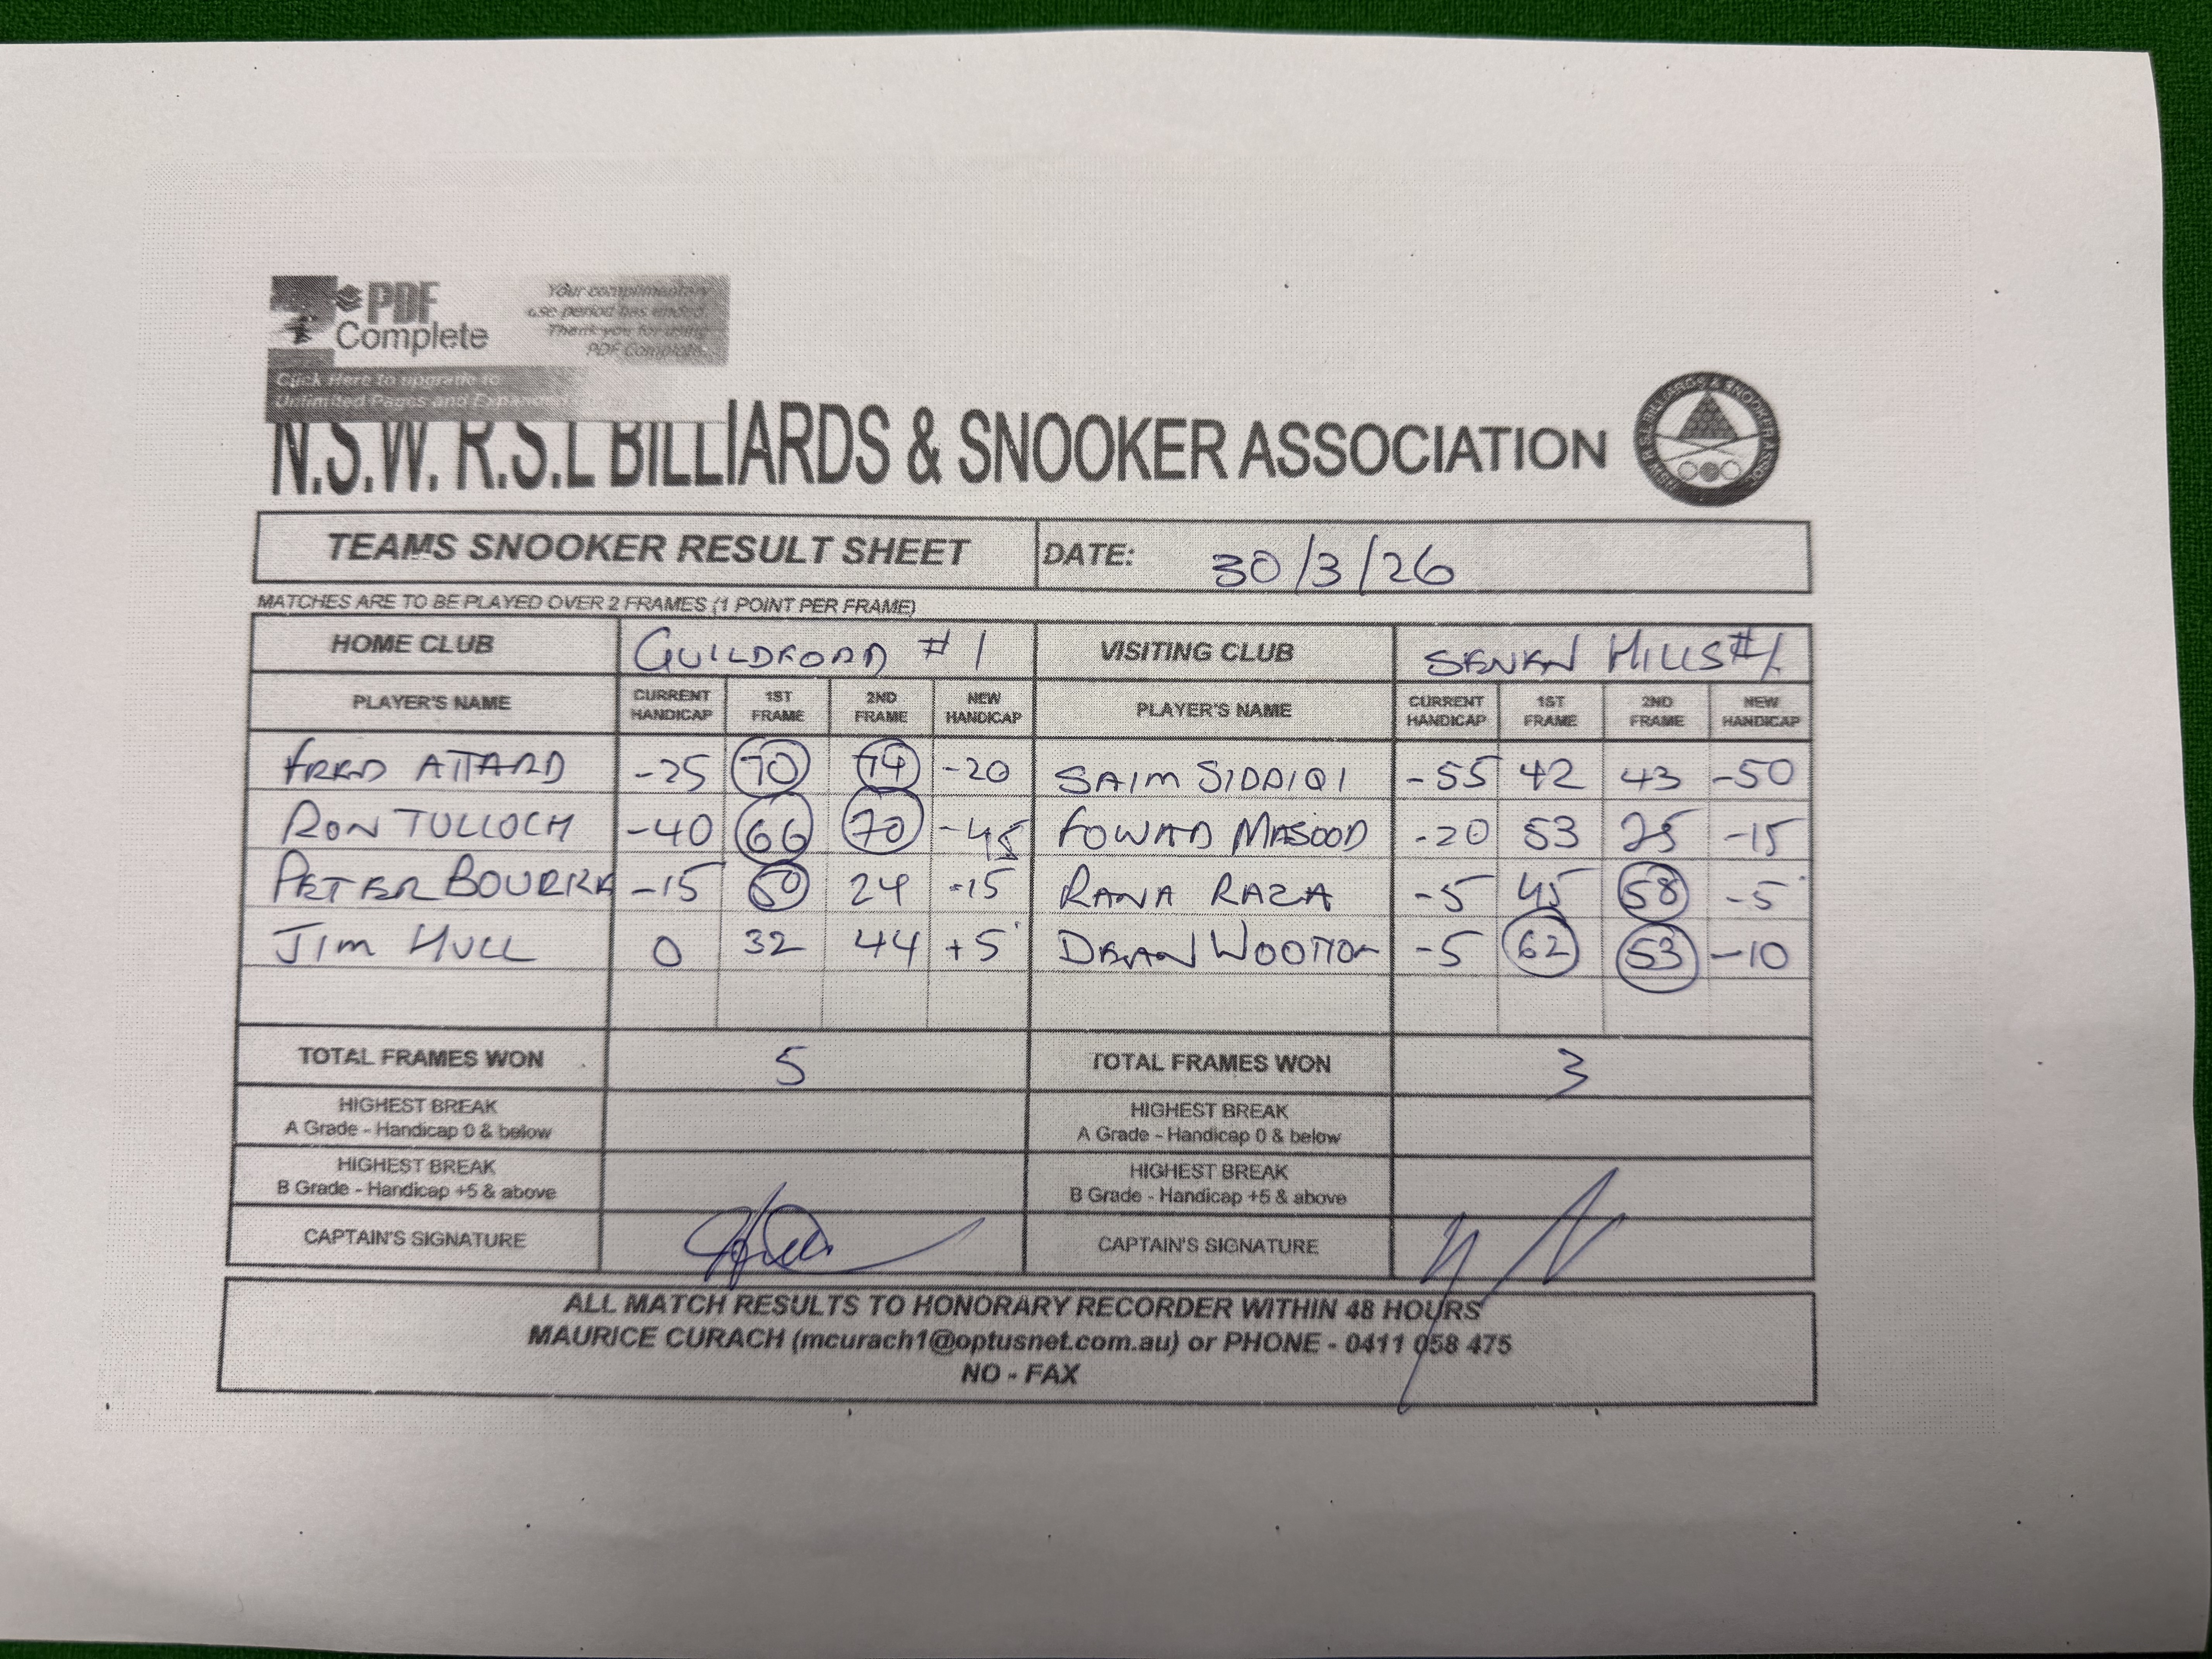 PDF Complete
Your complimentary
use period has ended.
Thank you for using
PDF Complete.
Click Here to upgrade to
Unlimited Pages and Expanded
N.S.W. R.S.L BILLIARDS & SNOOKER ASSOCIATION
NSW R.S.L BILLIARDS & SNOOKER ASSOC.
TEAMS SNOOKER RESULT SHEET DATE: 30/3/26
MATCHES ARE TO BE PLAYED OVER 2 FRAMES (1 POINT PER FRAME)
HOME CLUB GUILDFORD #1 VISITING CLUB SEVEN HILLS #1
PLAYER'S NAME CURRENT HANDICAP 1ST FRAME 2ND FRAME NEW HANDICAP PLAYER'S NAME CURRENT HANDICAP 1ST FRAME 2ND FRAME NEW HANDICAP
FRED ATTARD -25 70 74 -20 SAIM SIDDIQI -55 42 43 -50
RON TULLOCH -40 66 70 -45 FOWAD MASOOD -20 53 25 -15
PETER BOURKE -15 50 24 -15 RANA RAZA -5 45 58 -5
JIM HULL 0 32 44 +5 DEAN WOOTTON -5 62 53 -10
TOTAL FRAMES WON 5 TOTAL FRAMES WON 3
HIGHEST BREAK
A Grade - Handicap 0 & below
HIGHEST BREAK
A Grade - Handicap 0 & below
HIGHEST BREAK
B Grade - Handicap +5 & above
HIGHEST BREAK
B Grade - Handicap +5 & above
CAPTAIN'S SIGNATURE CAPTAIN'S SIGNATURE
ALL MATCH RESULTS TO HONORARY RECORDER WITHIN 48 HOURS
MAURICE CURACH (mcurach1@optusnet.com.au) or PHONE - 0411 058 475
NO - FAX